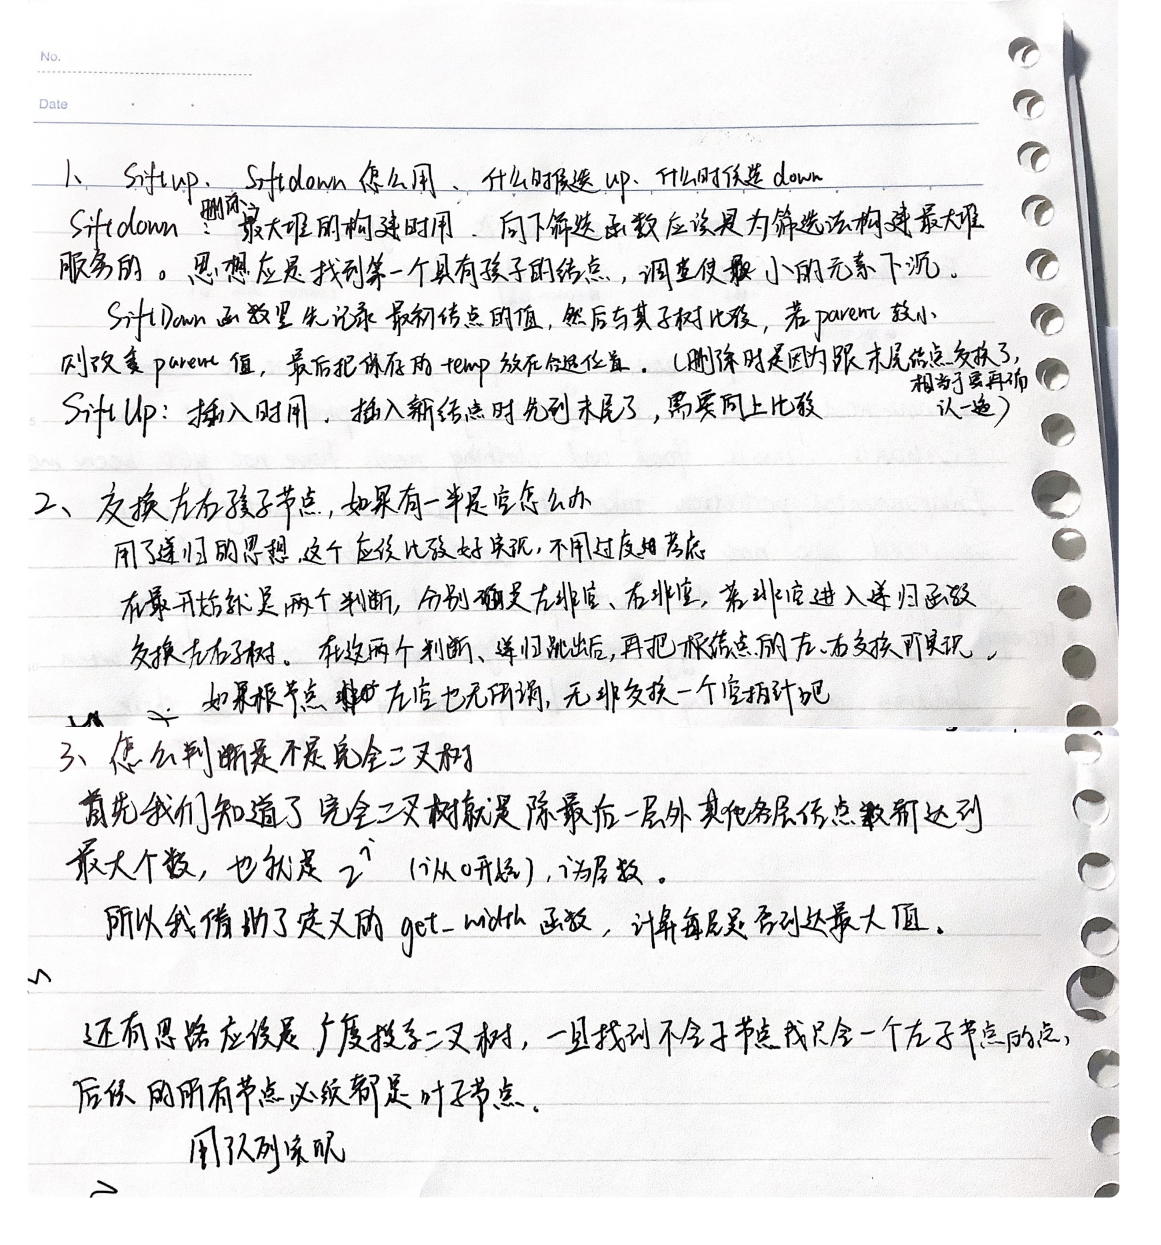 No.
Date
1、 Siftup、 Siftdown 怎么用、什么时候选 up、什么时候选 down
Siftdown : 删除、最大堆的构建时用、向下筛选函数应该是为筛选法构建最大堆
服务的。思想应是找到第一个具有孩子的结点，调整使最小的元素下沉。
SiftDown 函数里先记录最初结点的值，然后与其子树比较，若parent 较小
则改变 parent 值，最后把保存的 temp 放在合适位置。（删除时是因为跟末尾结点交换了，
相当于要再确
认一遍）
SiftUp：插入时用、插入新结点时先到末尾了，需要向上比较
2、交换左右孩子节点，如果有一半是空怎么办
用了递归的思想，这个应该比较好实现，不用过度考虑
在最开始就是两个判断，分别确定左非空、右非空，若非空进入递归函数
交换左右子树。在这两个判断、递归跳出后，再把根结点的左、右交换即实现。
如果根节点左空也无所谓，无非交换一个空指针吧
3、怎么判断是不是完全二叉树
首先我们知道了完全二叉树就是除最后一层外其他各层结点数都达到
最大个数，也就是 2^i （i从0开始），i为层数。
所以我借助了定义的 get_width 函数，计算每层是否到达最大值。
还有思路应该是广度搜索二叉树，一旦找到不含子节点或只含一个左子节点的点，
后续的所有节点必须都是叶子节点。
用队列实现